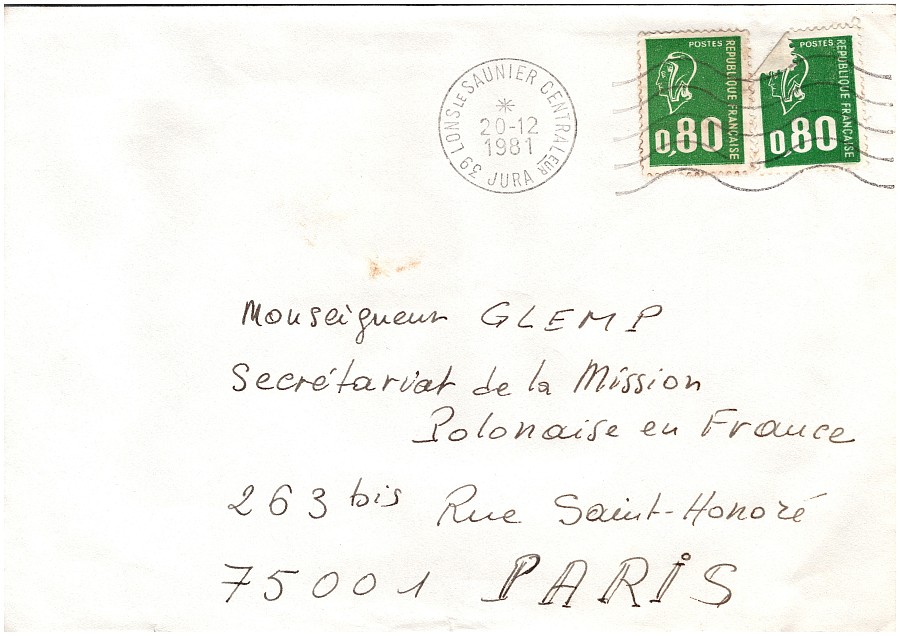 LONS LE SAUNIER CENTRAL EUR
20-12
1981
39 JURA
POSTES
REPUBLIQUE FRANÇAISE
0,80
POSTES
REPUBLIQUE FRANÇAISE
0,80
Monseigneur GLEMP
Secrétariat de la Mission
Polonaise en France
263 bis Rue Saint-Honoré
75001 PARIS